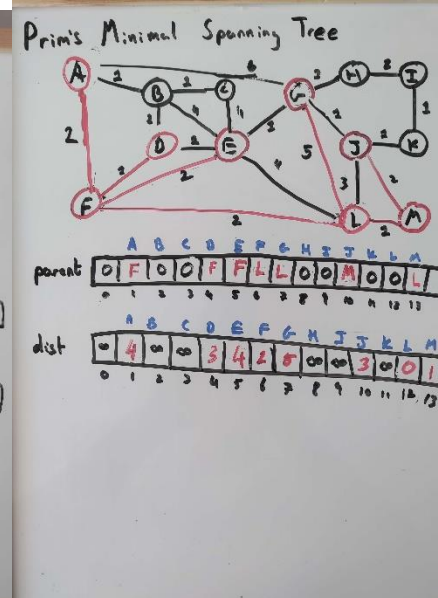 Prim's Minimal Spanning Tree
A B C G H I
D E J K
F L M
A B C D E F G H I J K L M
parent 0 F 0 0 F F L L 0 0 M 0 0 L
0 1 2 3 4 5 6 7 8 9 10 11 12 13
A B C D E F G H I J K L M
dist ∞ 4 ∞ ∞ 3 4 2 5 ∞ ∞ 3 ∞ 0 1
0 1 2 3 4 5 6 7 8 9 10 11 12 13